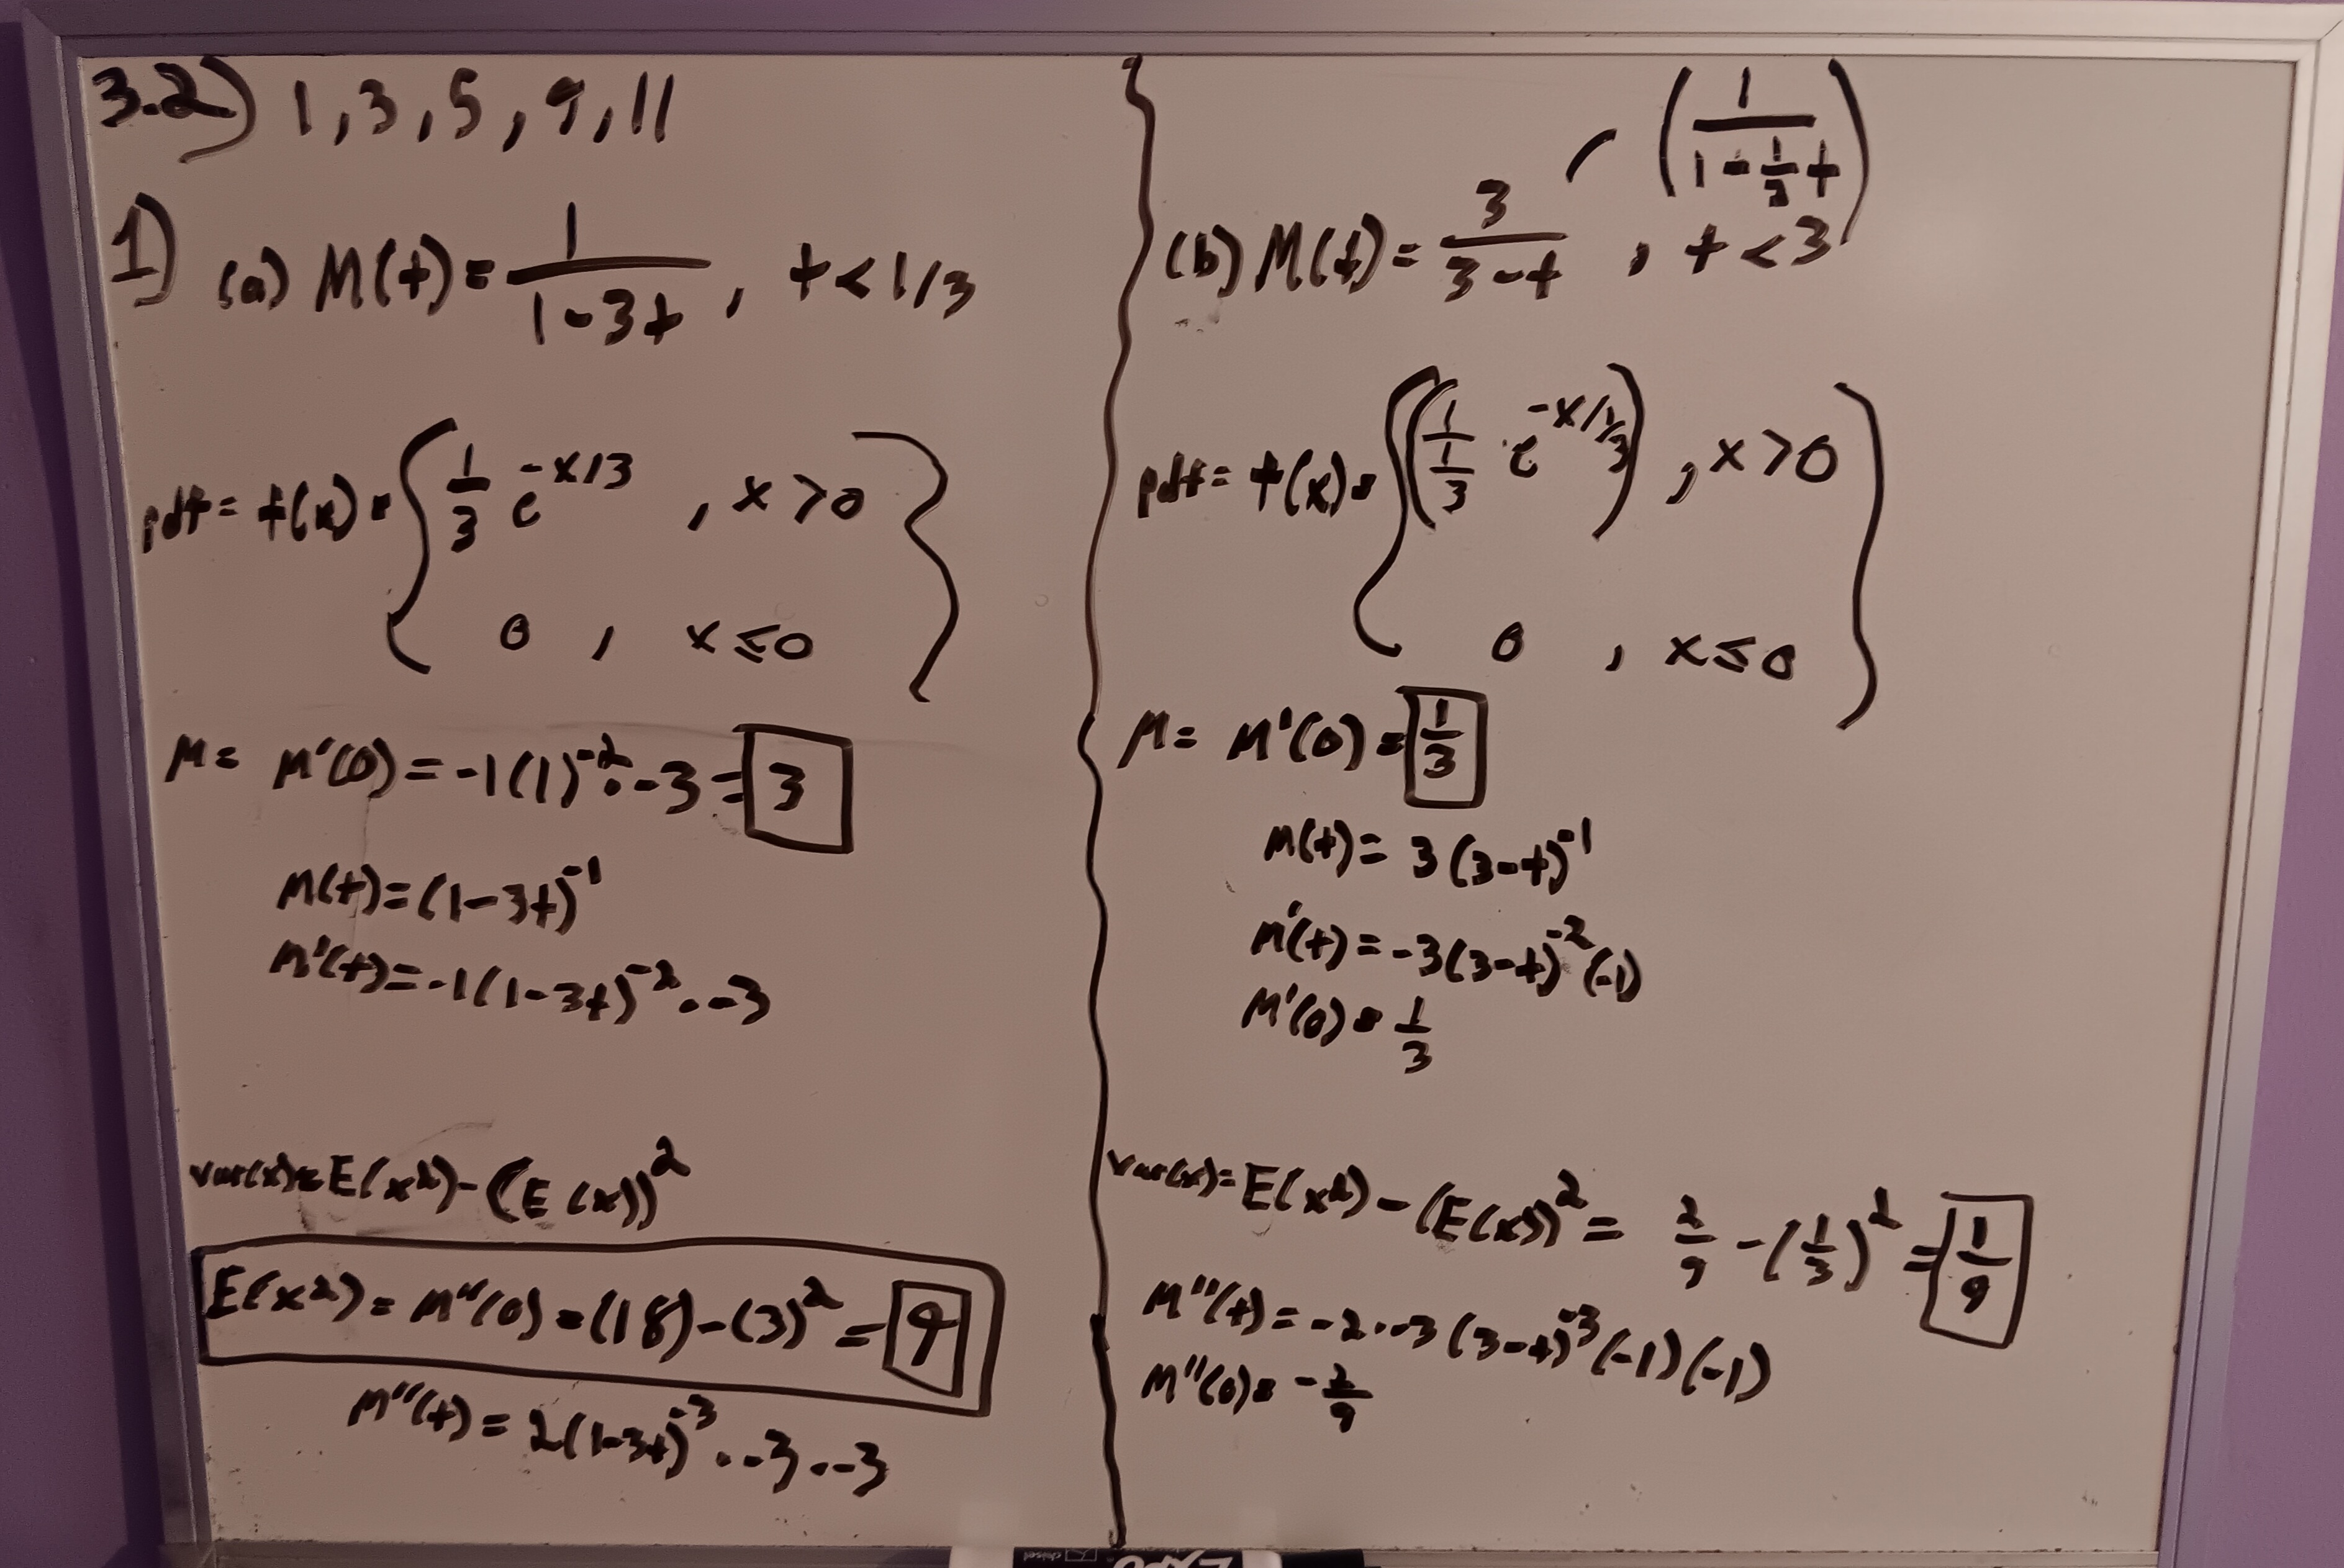 3.2) 1, 3, 5, 9, 11
1) (a) M(t) = 1/(1-3t) , t < 1/3
pdf = f(x) = { 1/3 e^(-x/3) , x > 0
0 , x ≤ 0 }
μ = M'(0) = -1(1)^(-2) · -3 = 3
M(t) = (1-3t)^(-1)
M'(t) = -1(1-3t)^(-2) · -3
var(x) = E(x²) - (E(x))²
E(x²) = M''(0) = (18) - (3)² = 9
M''(t) = 2(1-3t)^(-3) · -3 · -3
(1/(1 - 1/3 t))
(b) M(t) = 3/(3-t) , t < 3
pdf = f(x) = { (1/(1/3) e^(-x/(1/3))) , x > 0
0 , x ≤ 0 }
μ = M'(0) = 1/3
M(t) = 3(3-t)^(-1)
M'(t) = -3(3-t)^(-2) (-1)
M'(0) = 1/3
var(x) = E(x²) - (E(x))² = 2/9 - (1/3)² = 1/9
M''(t) = -2 · -3(3-t)^(-3) (-1)(-1)
M''(0) = -2/9
chisel
EXPO